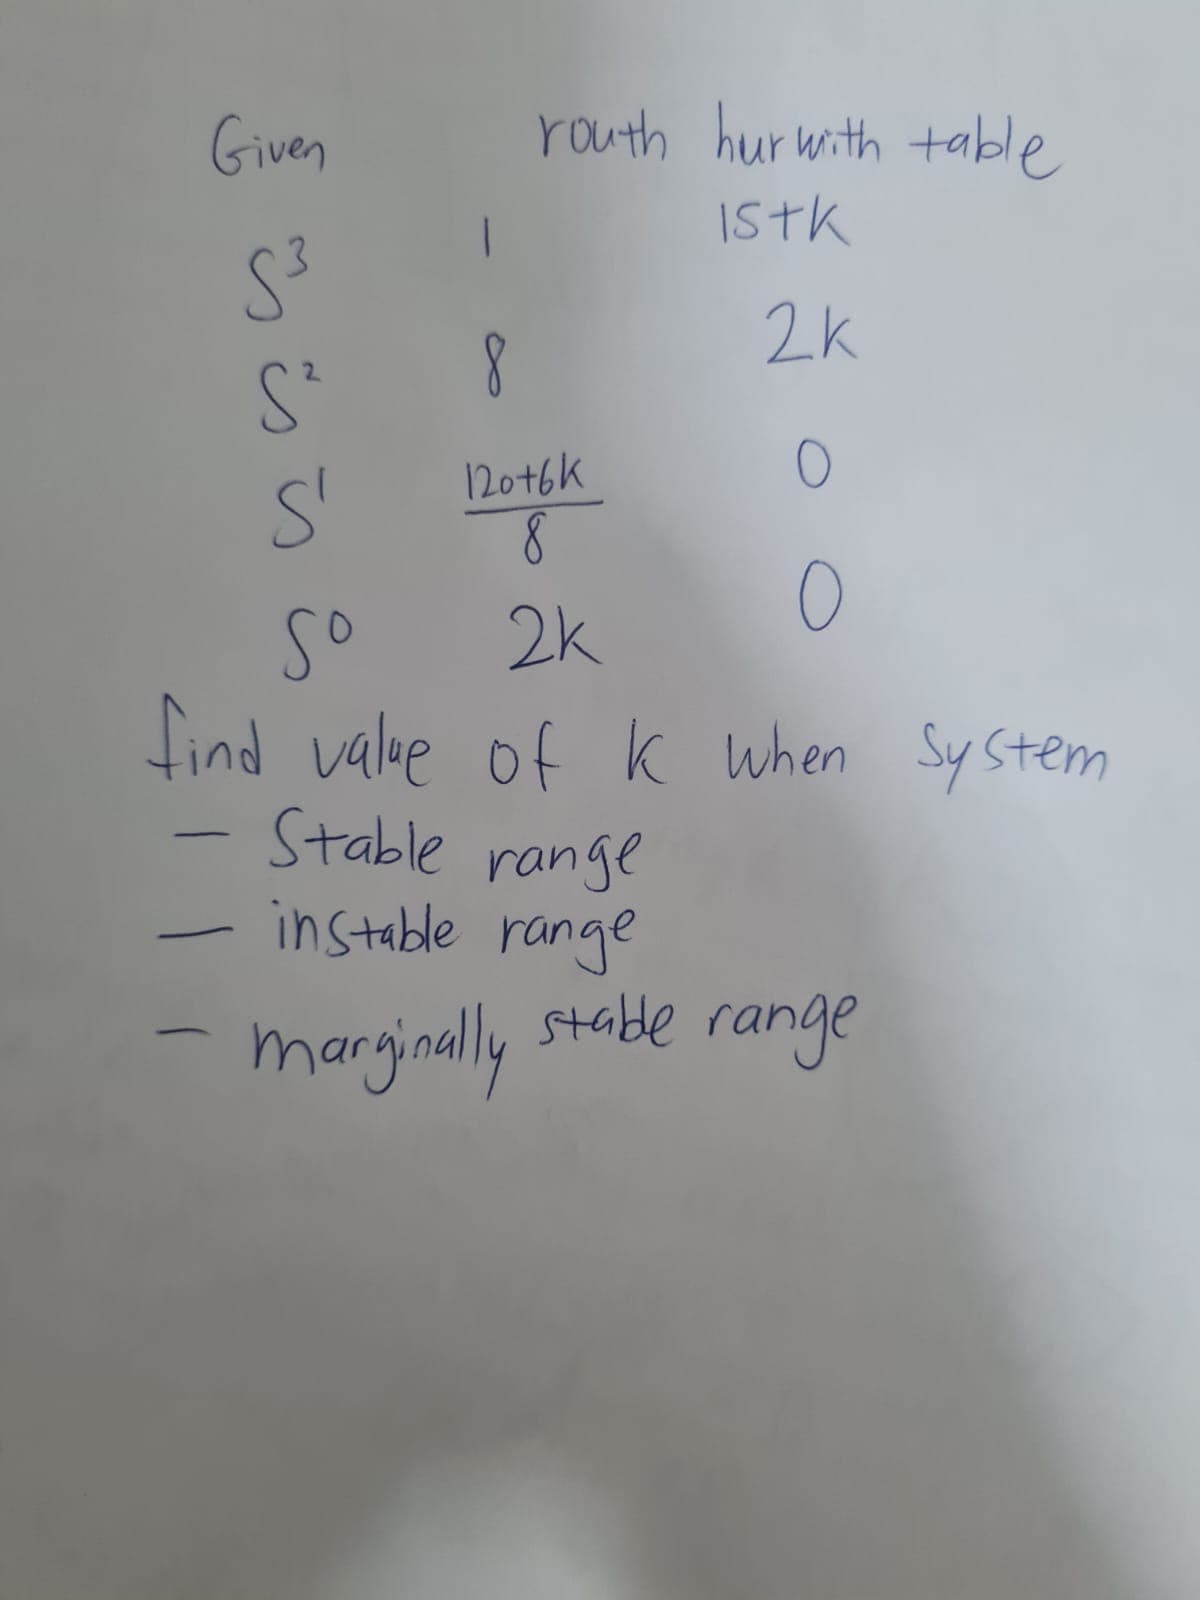 Given routh hurwith table
S³ 1 15+k
S² 8 2k
S¹ 120+6k/8 0
S⁰ 2k 0
find value of k when system
- Stable range
- instable range
- marginally stable range